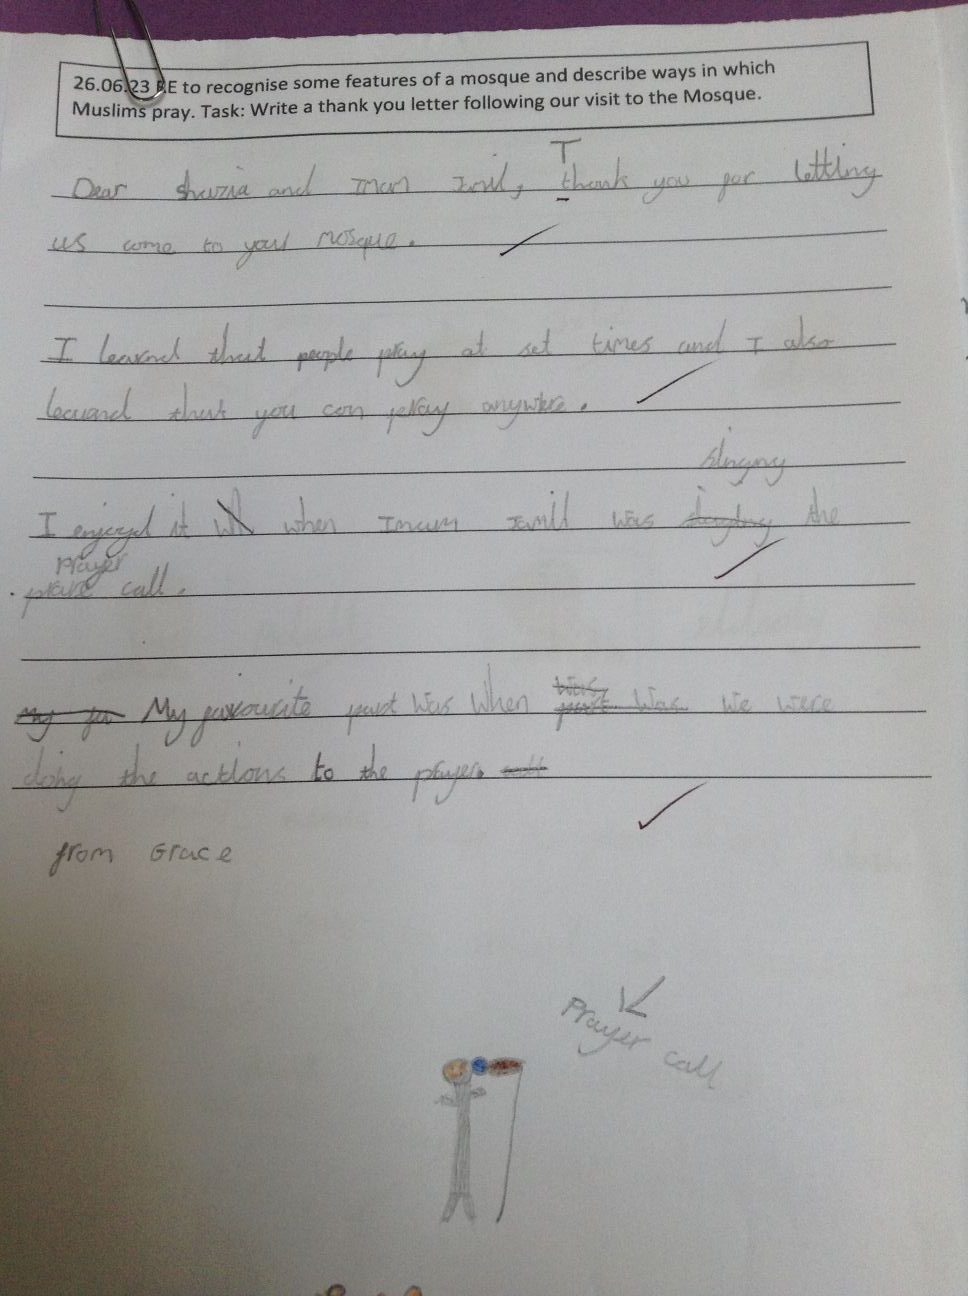 26.06.23 RE to recognise some features of a mosque and describe ways in which
Muslims pray. Task: Write a thank you letter following our visit to the Mosque.
T
Dear shazia and Iman Jamil, thank you for letting
us come to your mosque.
I learnd that people pray at set times and I also
learnd that you can pray anywhere.
singing
I enjoyed it when Imam Jamil was the
Prayer
call.
My favourite part was when we were
doing the actions to the prayer.
from Grace
Prayer call